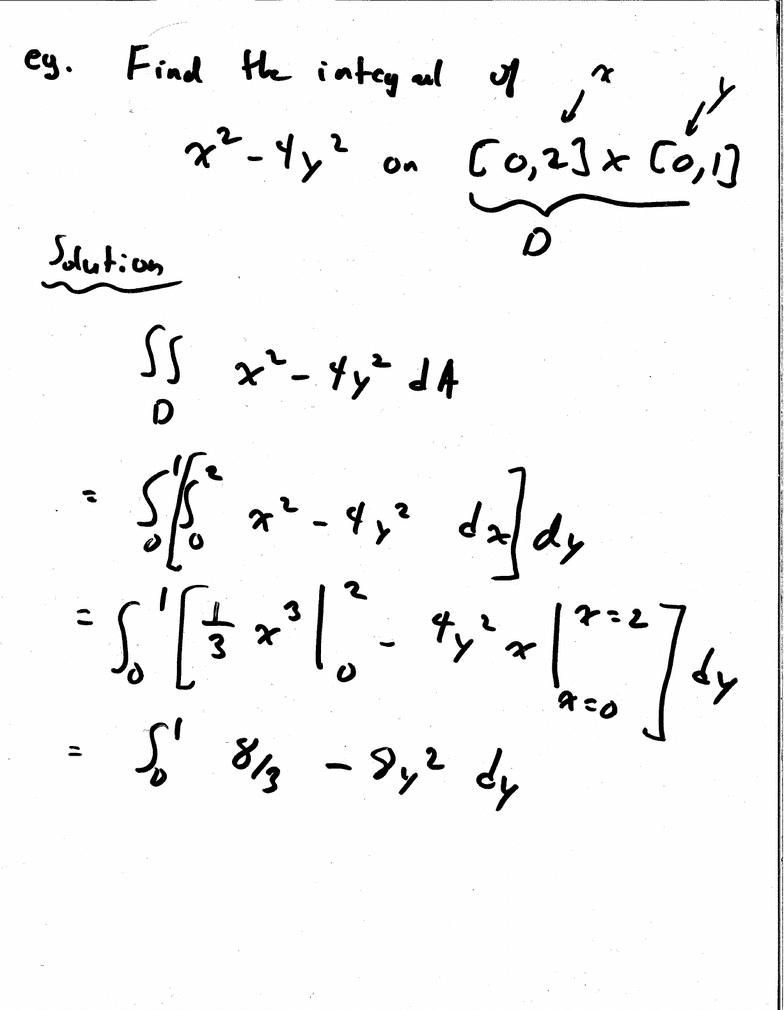 eg. Find the integral of
x y
x² - 4y² on [0,2] x [0,1]
D
Solution
∬ x² - 4y² dA
D
= ∫₀¹ [ ∫₀² x² - 4y² dx ] dy
= ∫₀¹ [ 1/3 x³ |₀² - 4y² x |ₓ₌₀ˣ⁼² ] dy
= ∫₀¹ 8/3 - 8y² dy